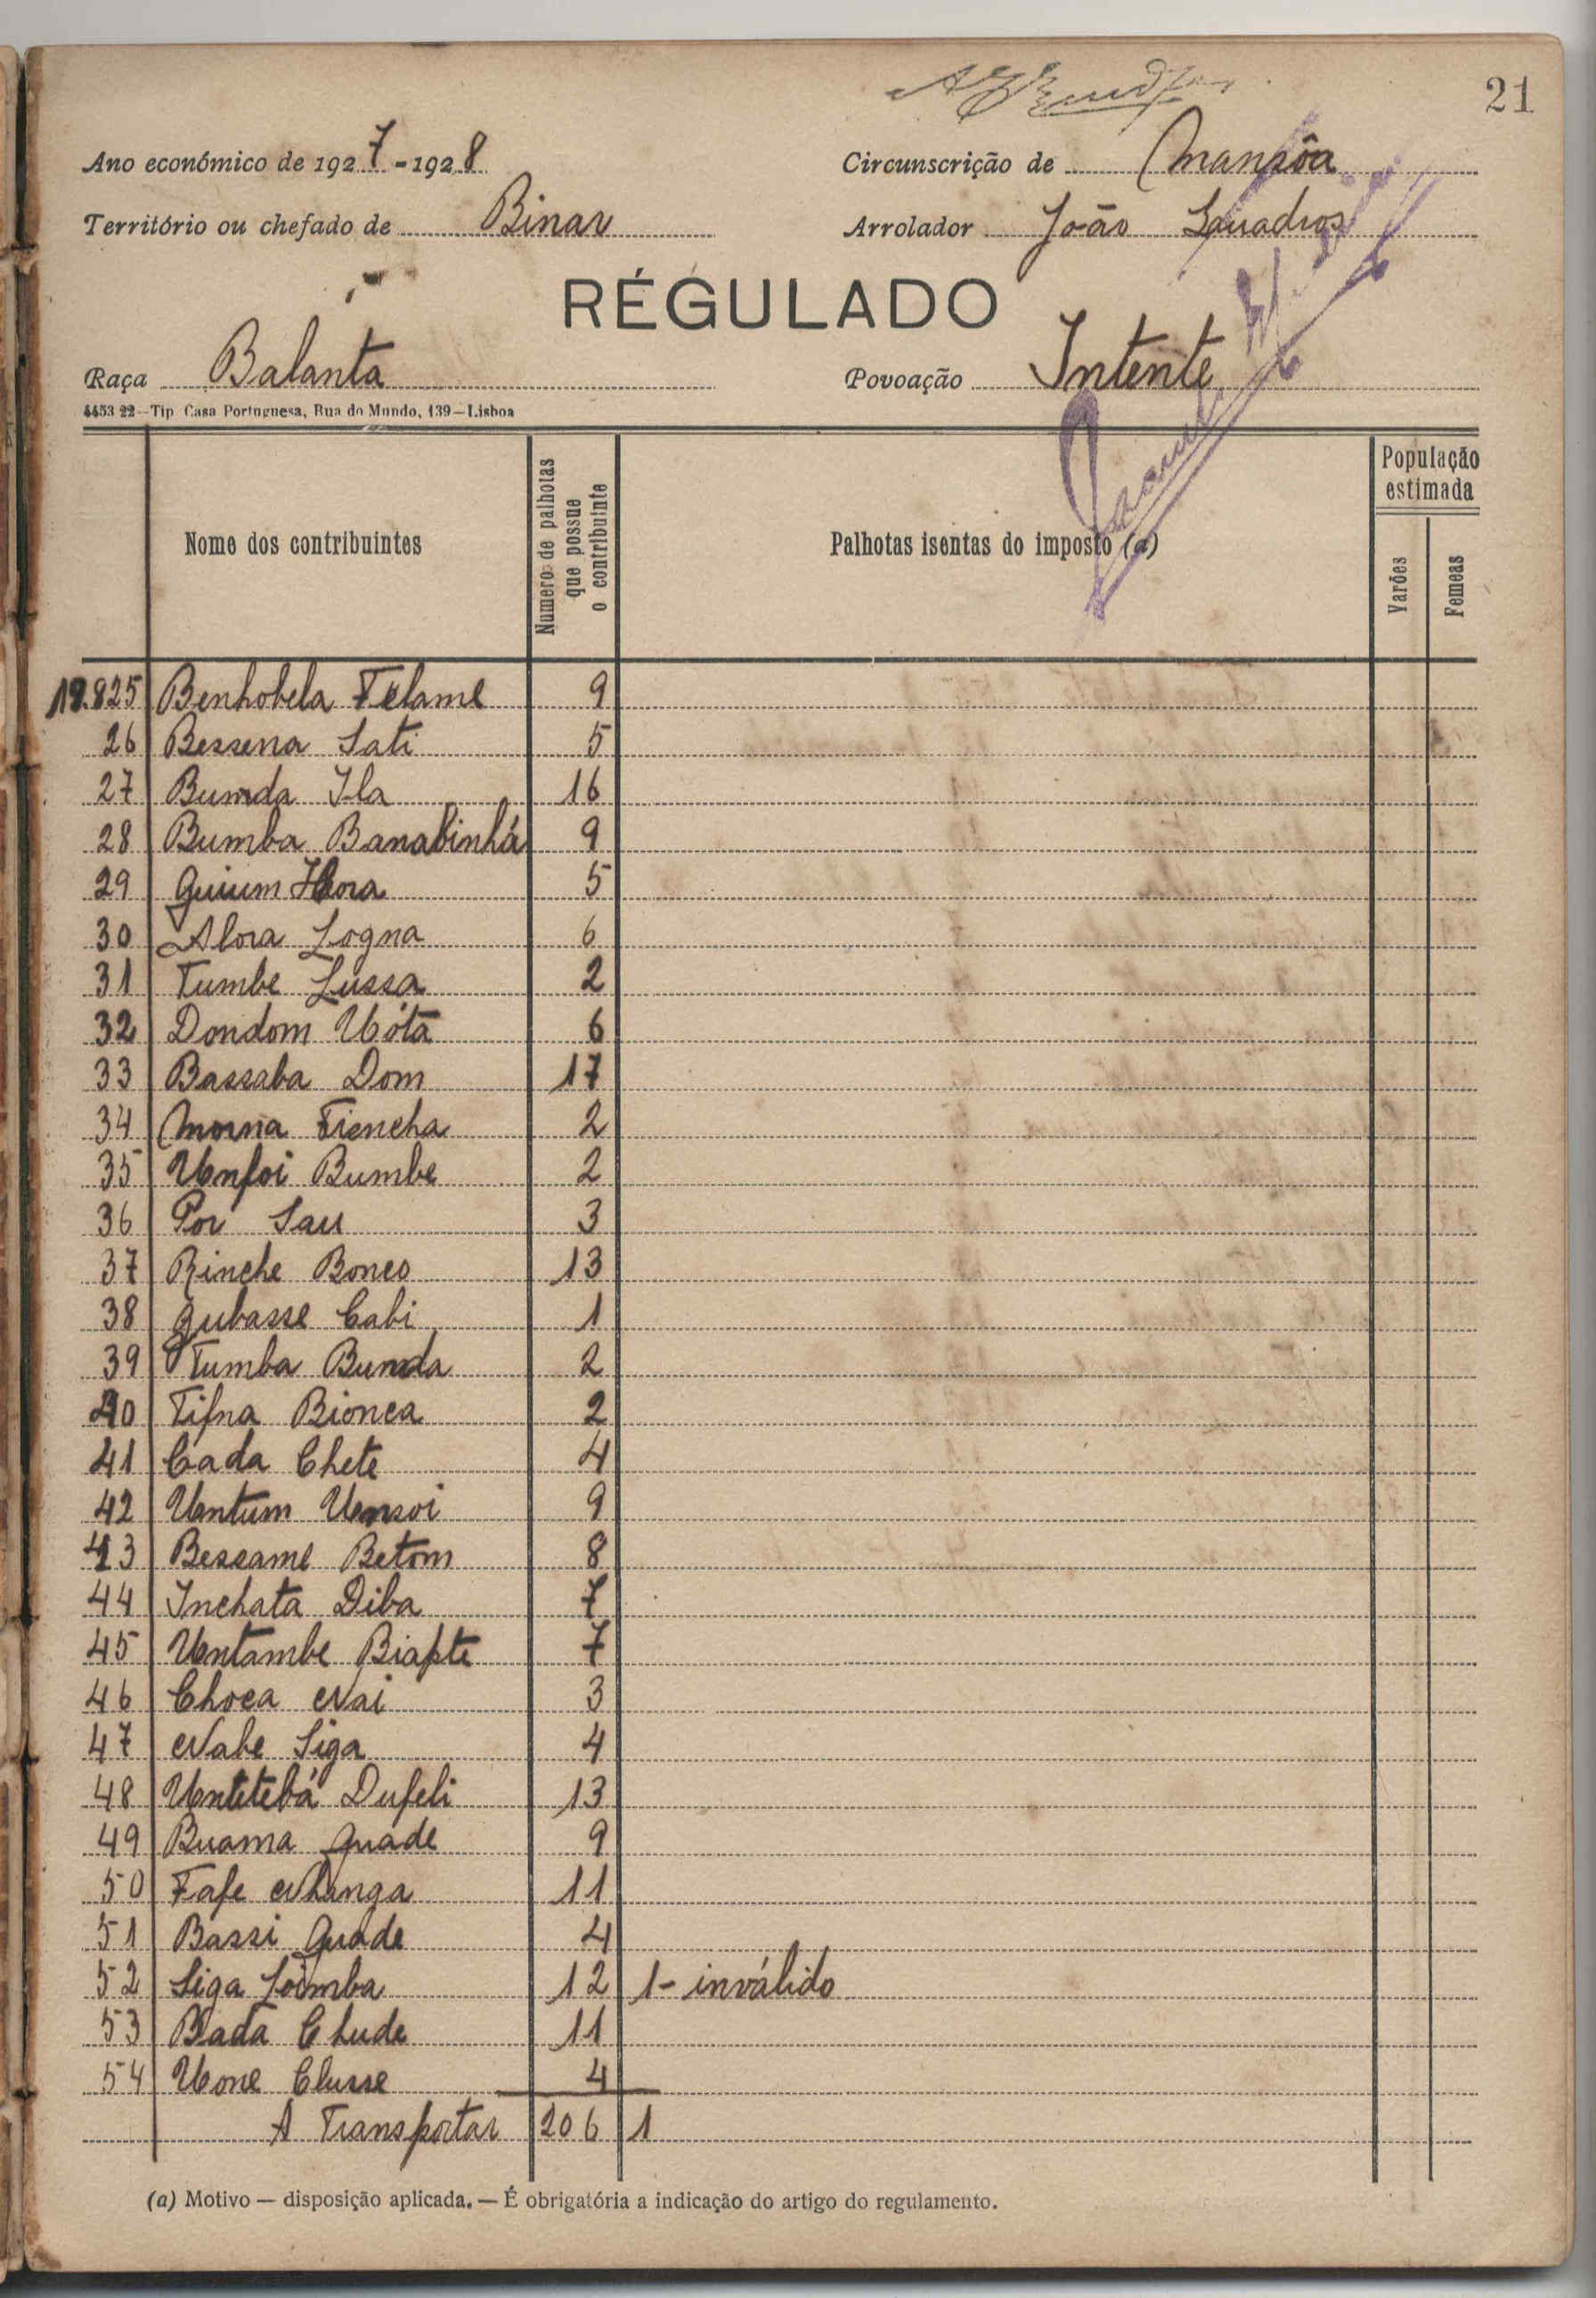 21
Ano económico de 1927-1928 Circunscrição de Mansôa
Território ou chefado de Binar Arrolador João
RÉGULADO
Raça Balanta Povoação Intente
4453 22—Tip Casa Portuguesa, Rua do Mundo, 139—Lisboa
Nome dos contribuintes Numero de palhotas que possue o contribuinte Palhotas isentas do imposto (a) População estimada Varões Femeas
19.825 Benhobela Telame 9
26 Bessena Sati 5
27 Bumda Ila 16
28 Bumba Banabinhá 9
29 Guium 5
30 Alora Logna 6
31 Tumbe Lussa 2
32 Dondom Uóta 6
33 Bassaba Dom 17
34 Morna Fiencha 2
35 Unfoi Bumbe 2
36 Por Sau 3
37 Rinche Bonco 13
38 Gubasse Cabi 1
39 Tumba Bumda 2
40 Tifna Bionca 2
41 Cada Chete 4
42 Untum Unsoi 9
43 Bessame Betom 8
44 Inchata Diba 7
45 Untambe Biapte 7
46 Choca Nai 3
47 Nabe Siga 4
48 Untitebá Dufeli 13
49 Buama Quade 9
50 Fafe Nhanga 11
51 Bassi Quade 4
52 Siga Loimba 12 1- inválido
53 Bada Chude 11
54 Uone Clusse 4
A Transportar 206 1
(a) Motivo — disposição aplicada. — É obrigatória a indicação do artigo do regulamento.